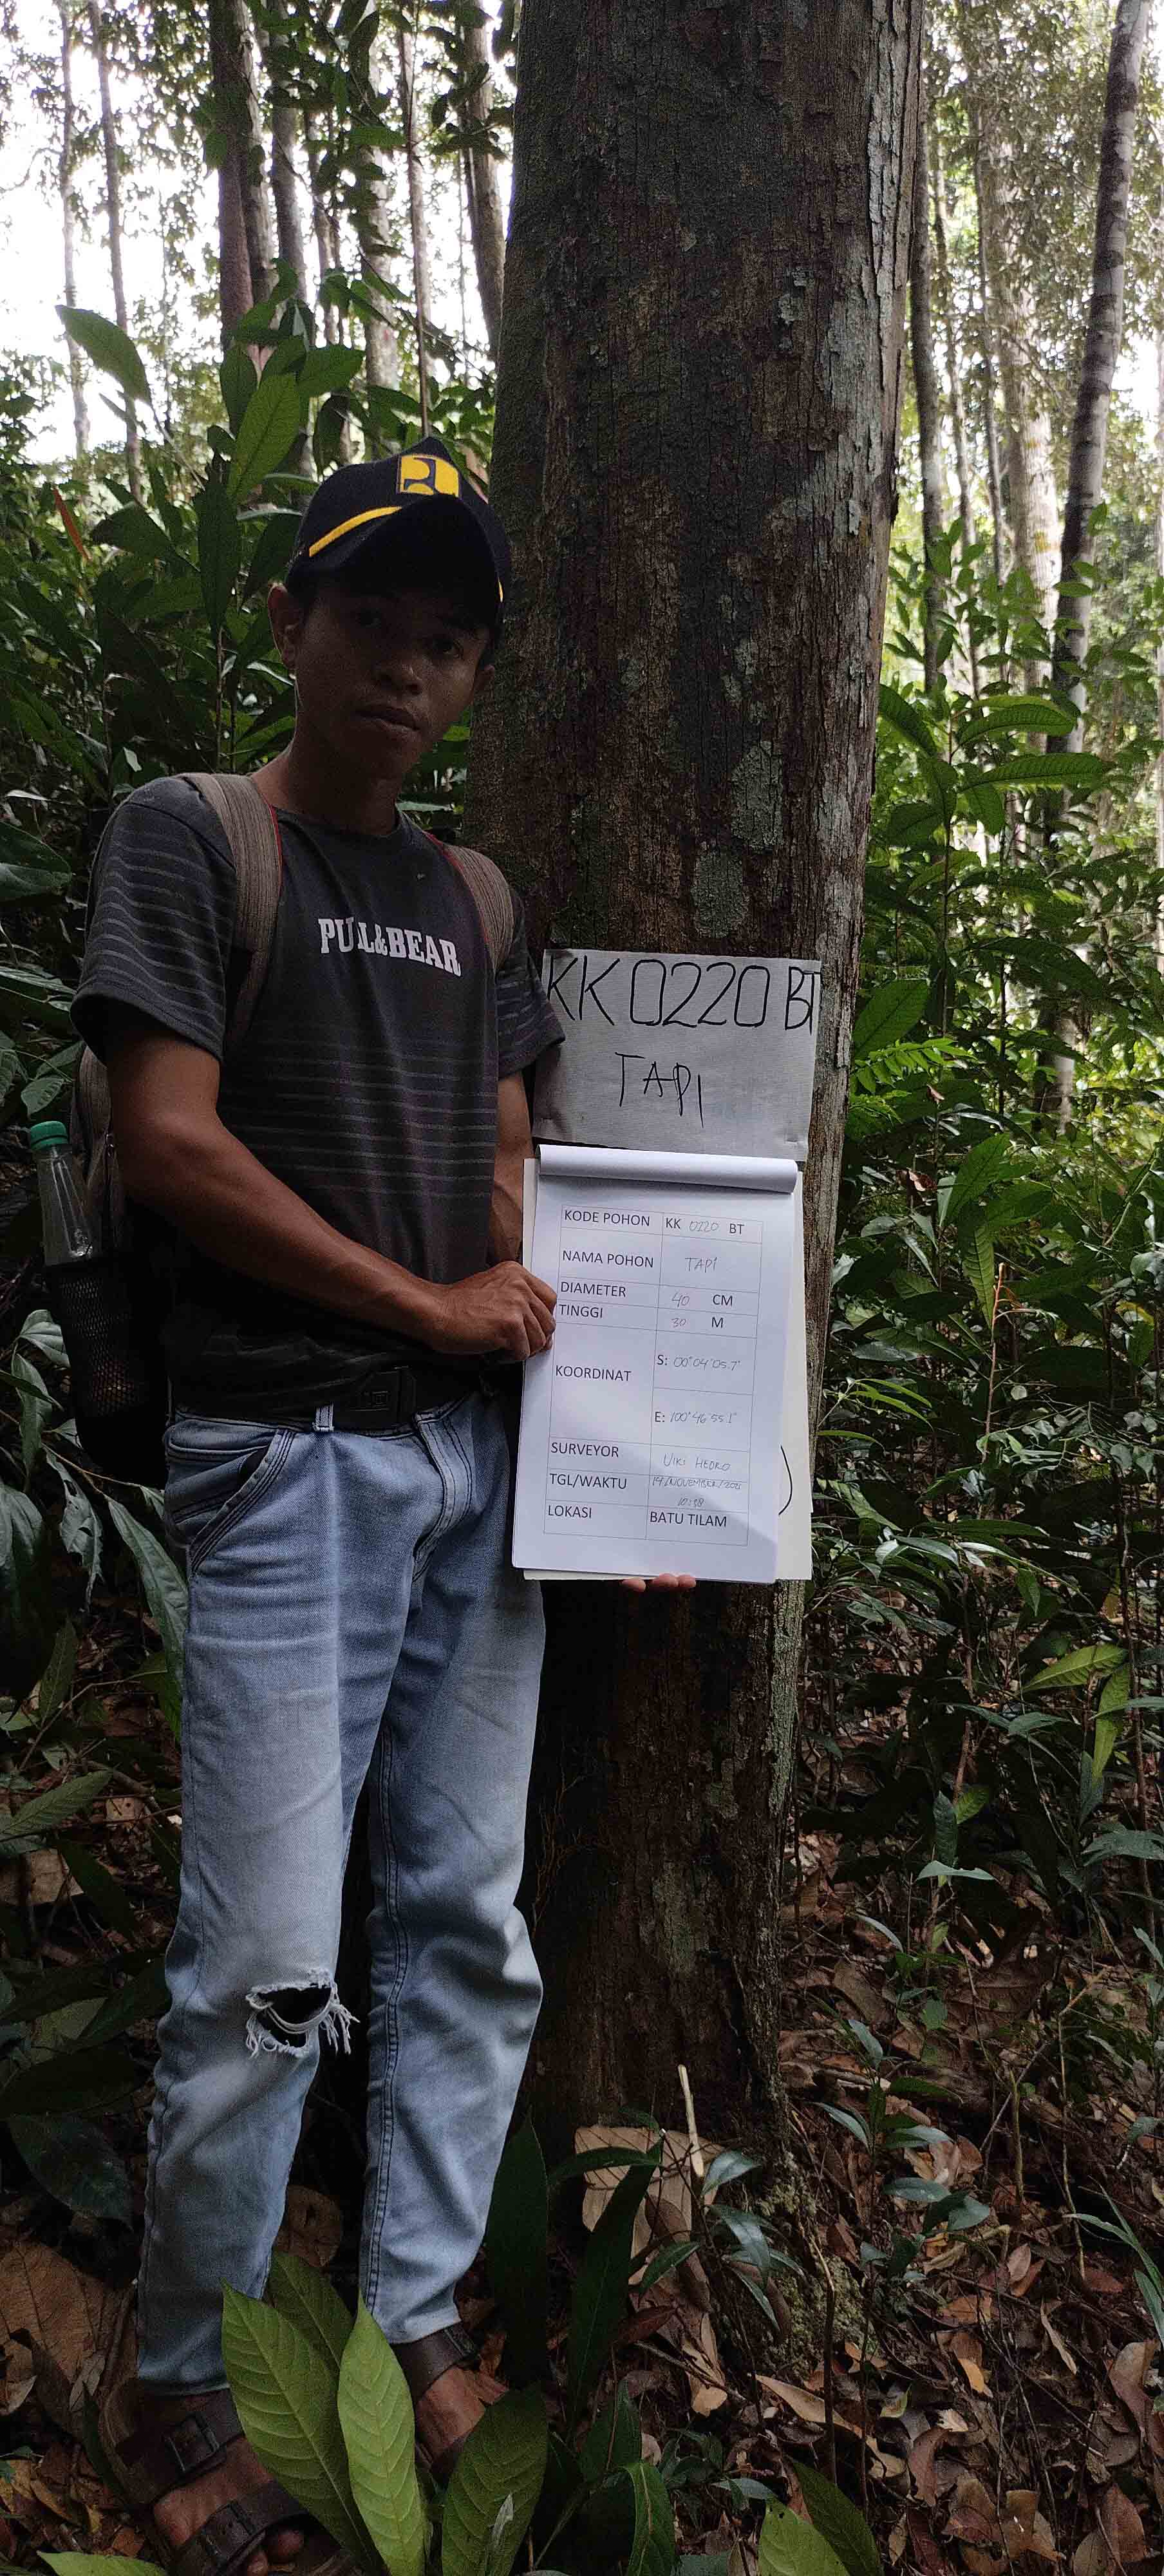 PULL&BEAR
KK 0220 BT
TAPI
KODE POHON KK 0220 BT
NAMA POHON TAPI
DIAMETER 40 CM
TINGGI 30 M
KOORDINAT S: 00°04'05.7"
E: 100°46'55.1"
SURVEYOR VIKI HEDRO
TGL/WAKTU 14/NOVEMBER/2021
LOKASI BATU TILAM